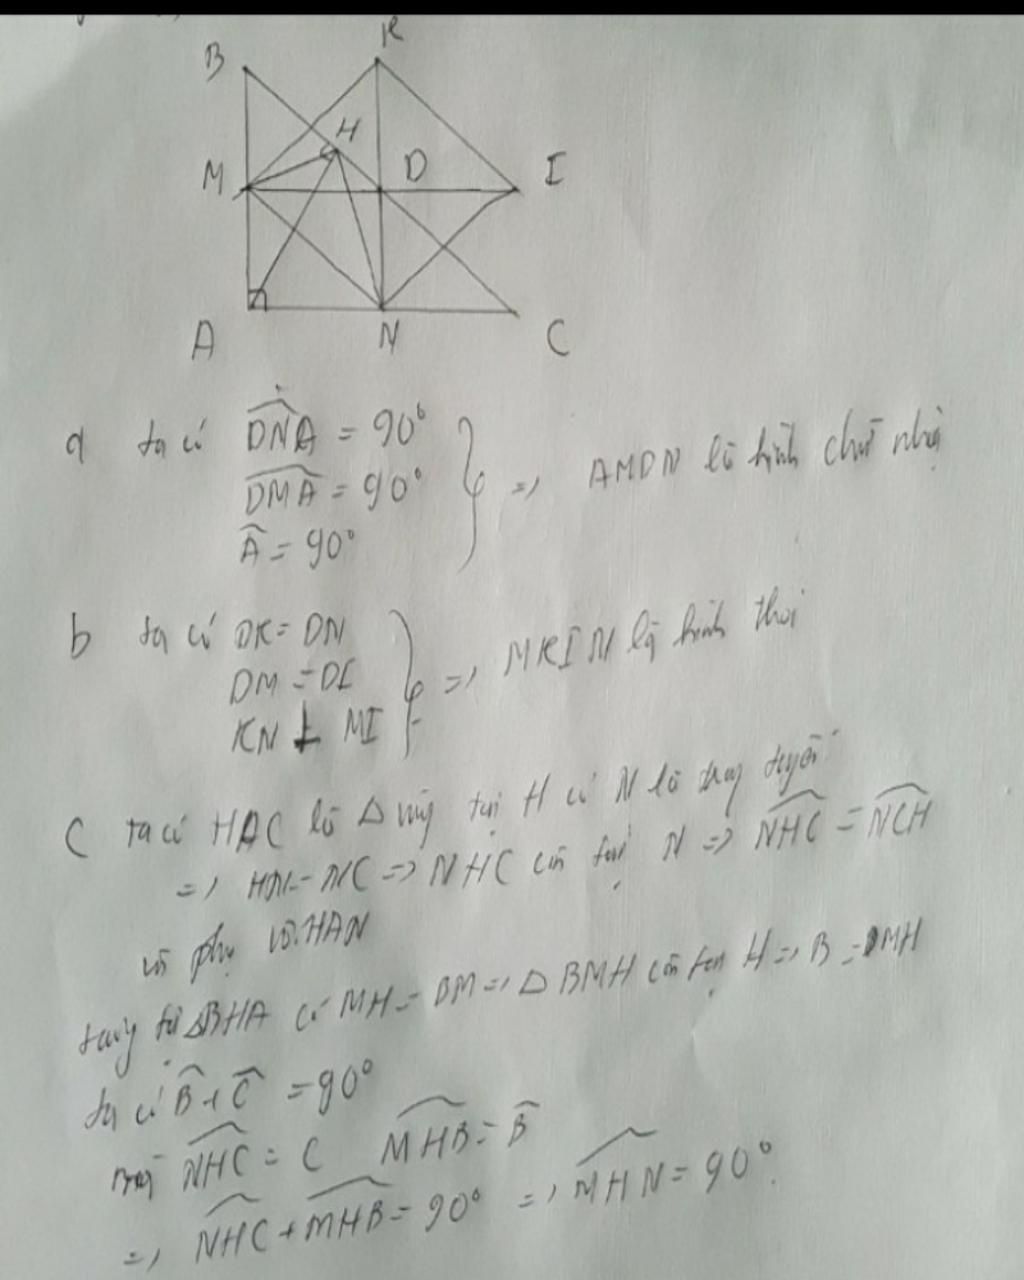 B
K
H
M
D
I
A
N
C
a ta có DNA = 90°
DMA = 90° => AMDN là hình chữ nhậ
A = 90°
b ta có DK = DN
DM = DI => MKIN là hình thoi
KN ⊥ MI
C ta có HAC là Δ vg tại H có N là trug tuyến
=> HN = NC => NHC cân tại N => NHC = NCH
phụ HAN
tự ΔBHA có MH = BM => Δ BMH cân tại H => B = BMH
ta có B + C = 90°
mà NHC = C MHB = B
=> NHC + MHB = 90° => MHN = 90°.